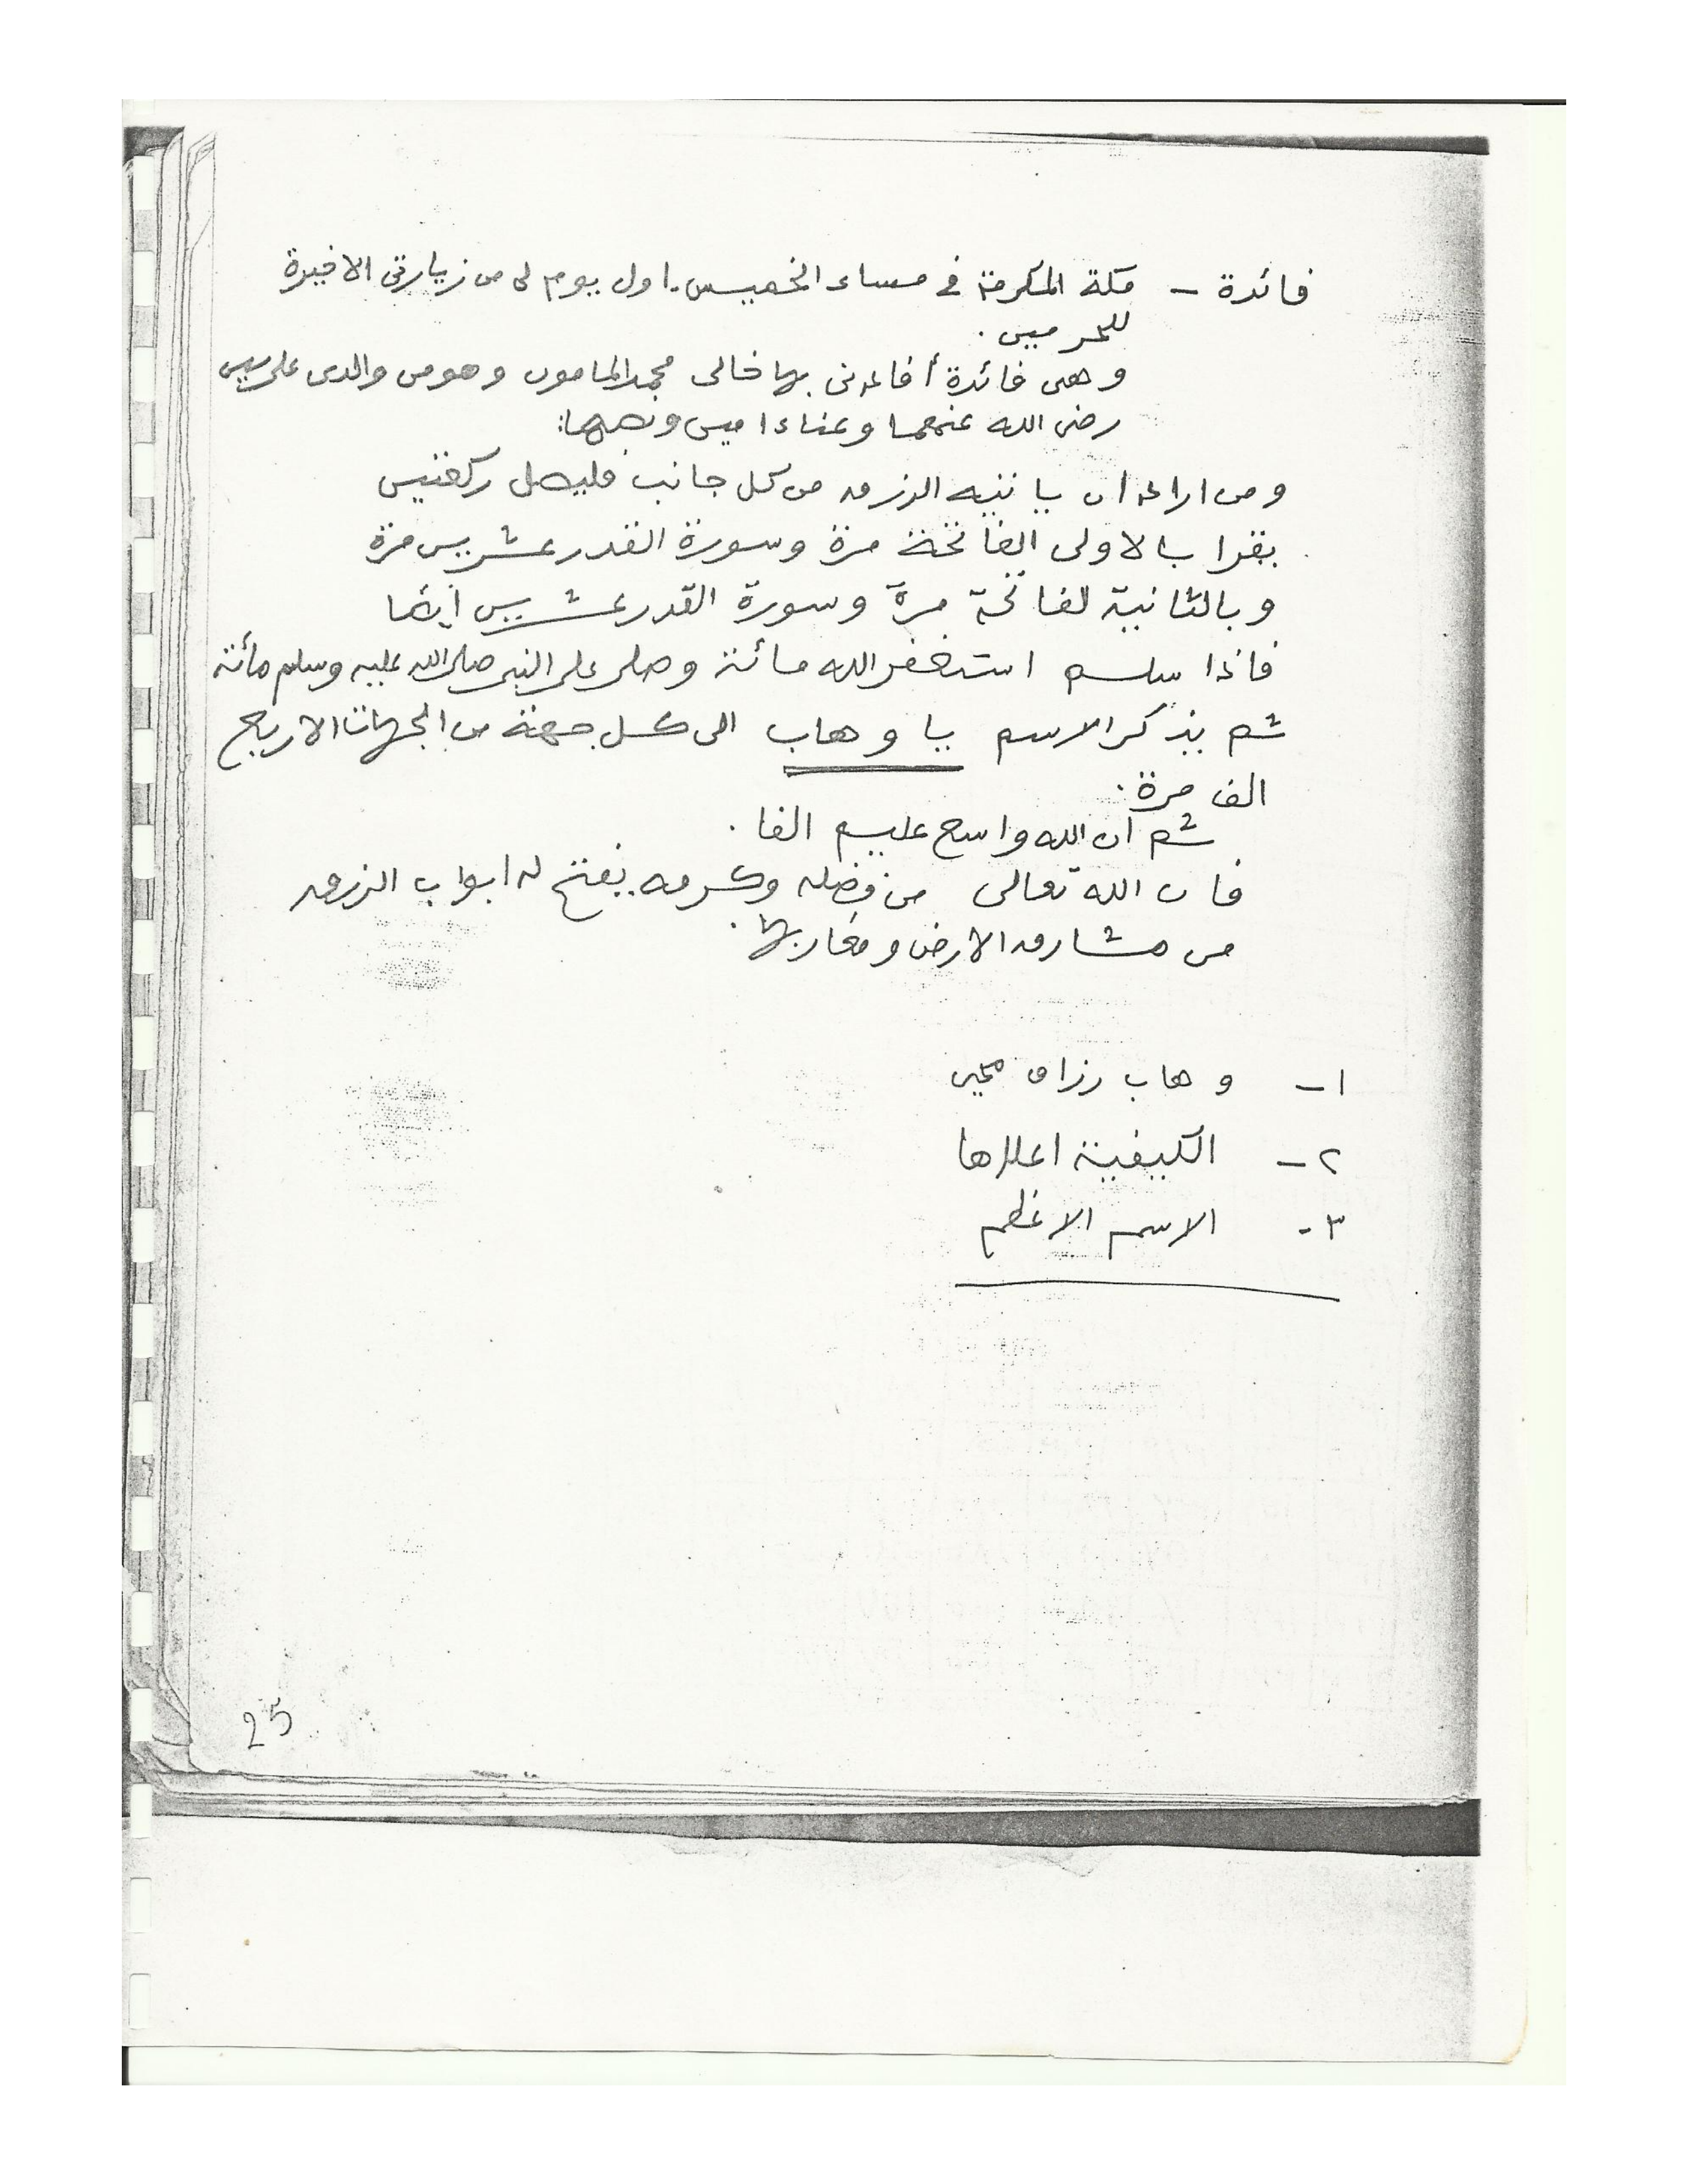 فائدة - مكة المكرمة في مساء الخميس. اول يوم لى من زيارتى الاخيرة
للحرمين.
وهى فائدة أفادنى بها خالى محمد المامون وهو من والدى على يس
رضى الله عنهما وعنا ءاميں ونصها:
ومن اراد ان ياتيه الرزق من كل جانب فليصل ركعتين
يقرا بالاولى الفاتحة مرة وسورة القدر عشرين مرة
وبالثانية لفاتحة مرة وسورة القدر عشرين أيضا
فاذا سلم استغفر الله مائة وصلى على النبى صلى الله عليه وسلم مأئة
ثم يذكر الاسم يا وهاب الى كل جهة من الجهات الاربع
الف مرة.
ثم ان الله واسع عليم الفا.
فان الله تعالى من فضله وكرمه يفتح له ابواب الرزق
من مشارق الارض ومغاربها.
١- وهاب رزاق
٢- الكيفية اعلاها
٣- الاسم الاعظم
25